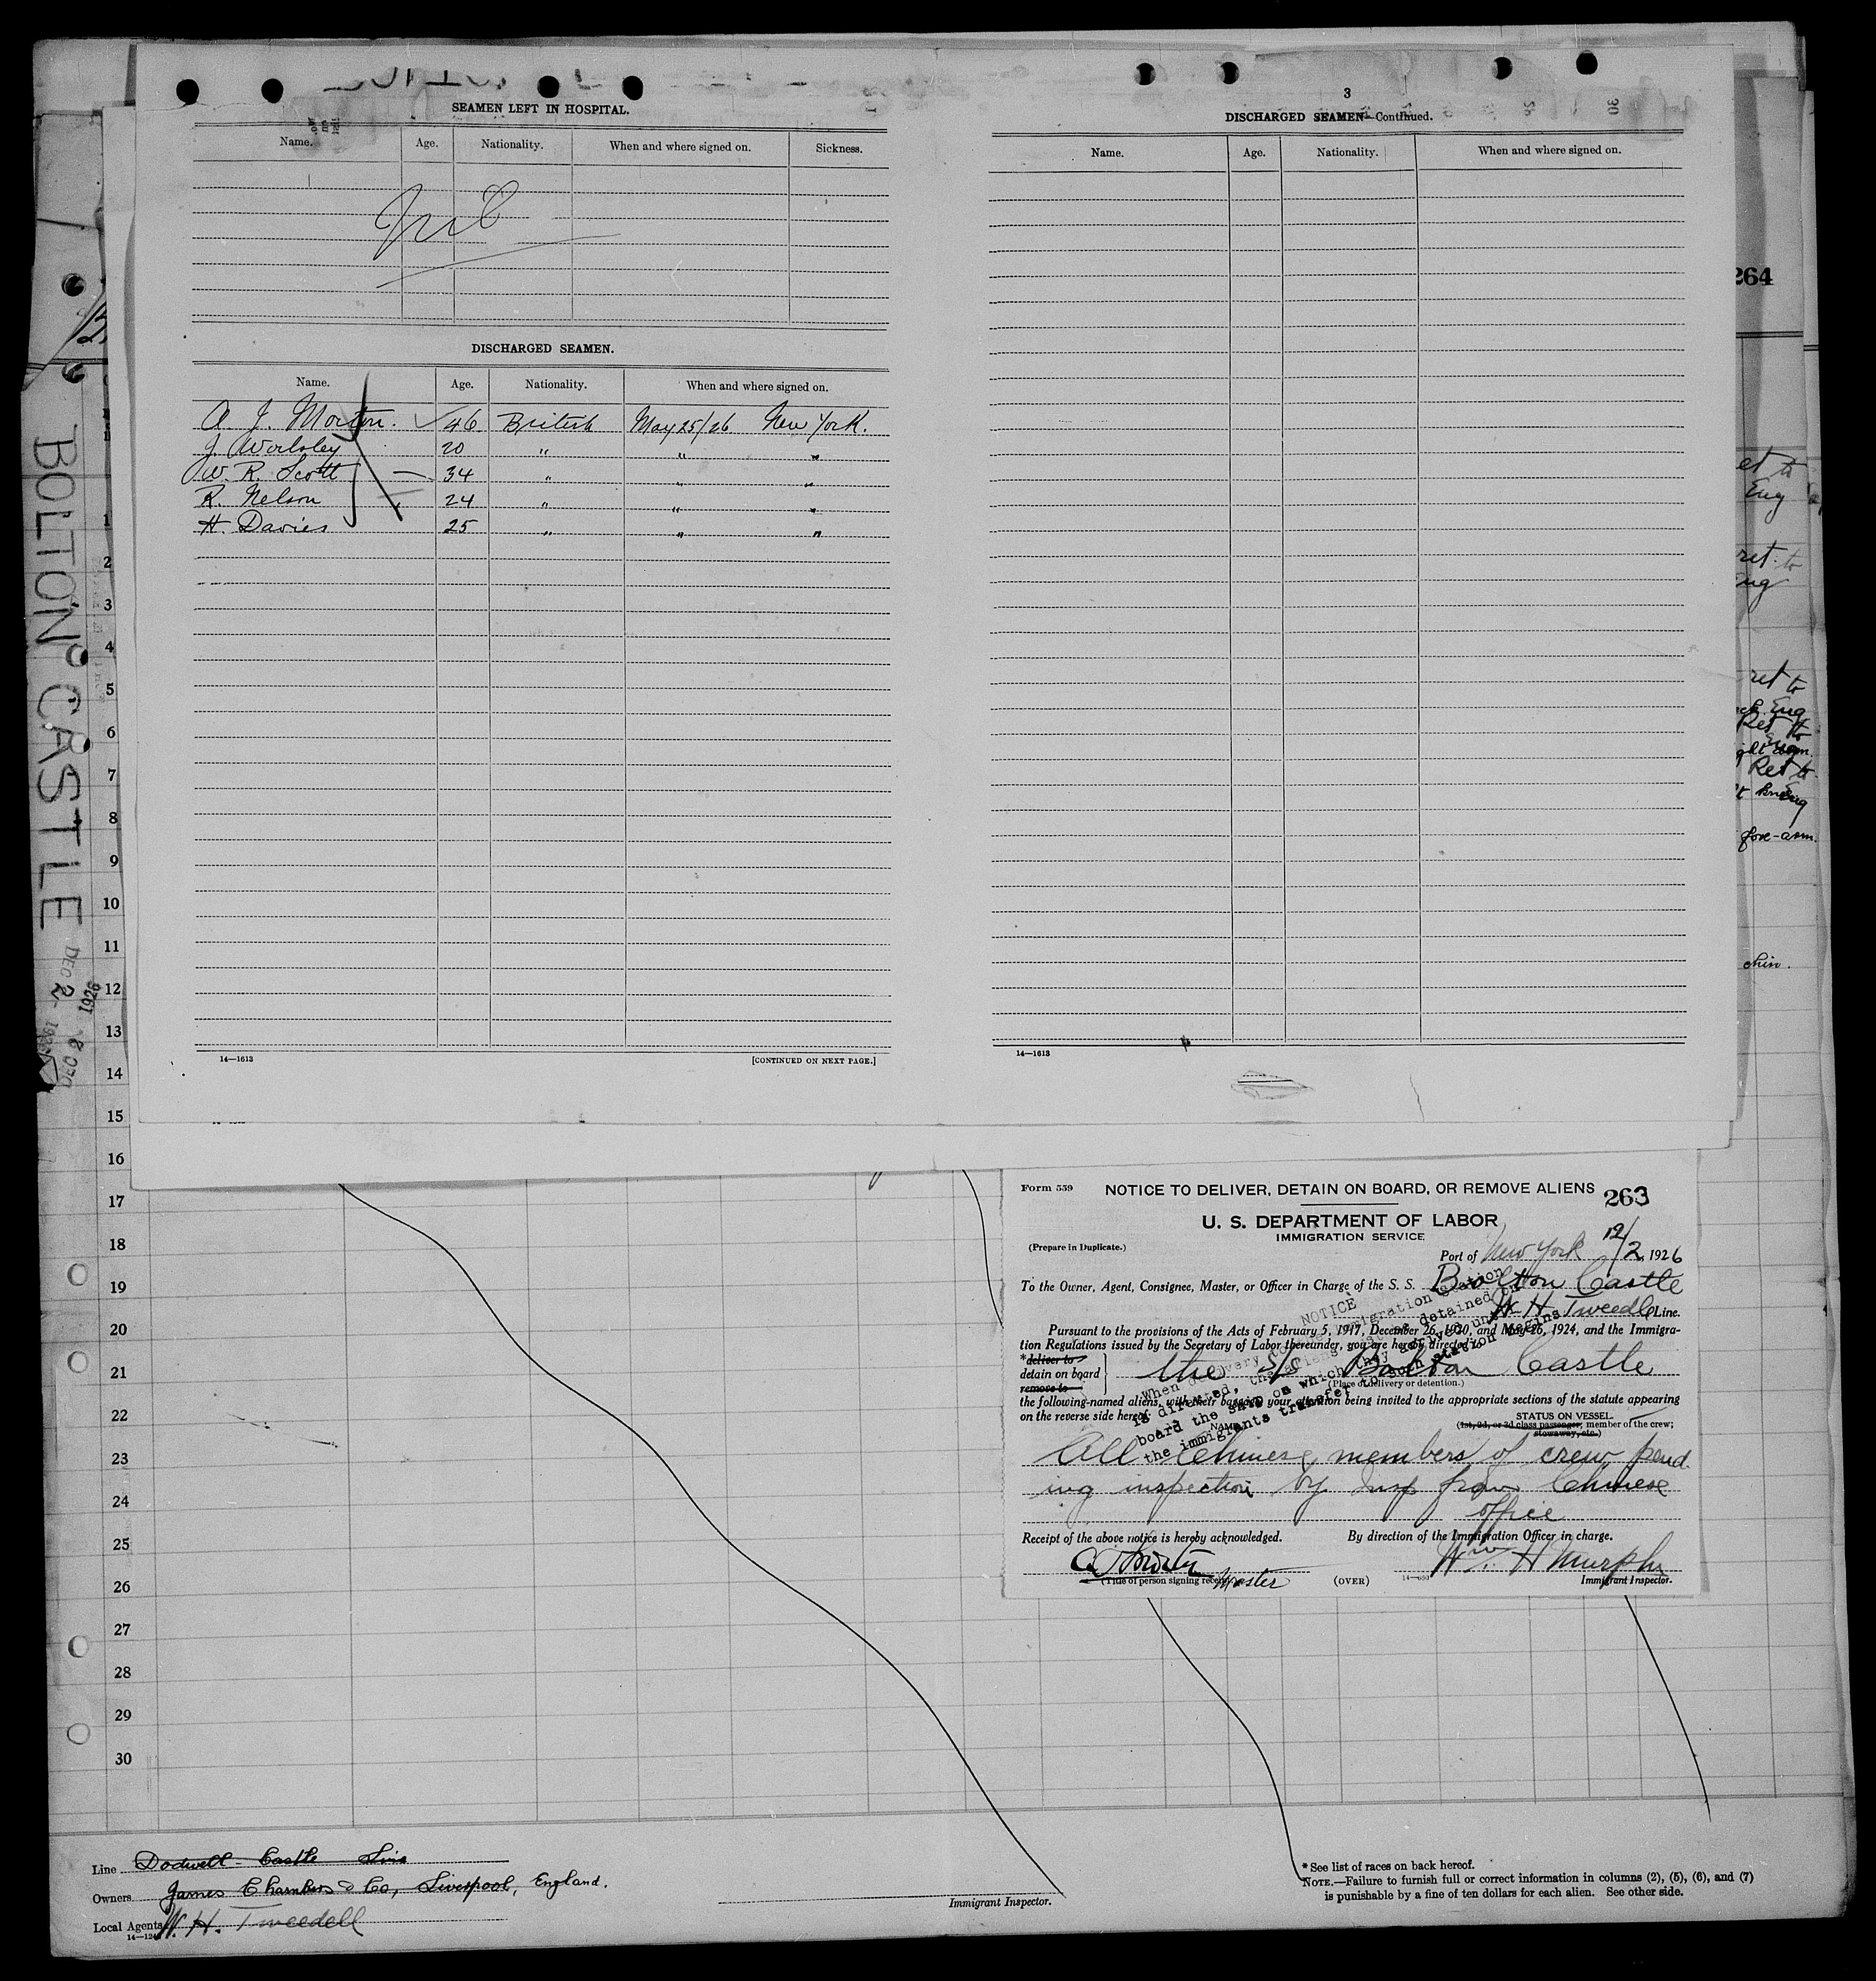 SEAMEN LEFT IN HOSPITAL.
Name. Age. Nationality. When and where signed on. Sickness.
Nil
DISCHARGED SEAMEN.
Name. Age. Nationality. When and where signed on.
A. J. Morton. 46 British May 25/26 New York.
J. Worlsley 20 " " "
W. R. Scott 34 " " "
R. Nelson 24 " " "
H. Davies 25 " " "
14—1613 [CONTINUED ON NEXT PAGE.]
3
DISCHARGED SEAMEN—Continued.
Name. Age. Nationality. When and where signed on.
14—1613
264
et to
Eng
ret to
Eng
ret to
Eng
Ret to
Ret to
Eng
fore-arm.
chin.
BOLTON CASTLE
DEC 2 - 1926
1
2
3
4
5
6
7
8
9
10
11
12
13
14
15
16
17
18
19
20
21
22
23
24
25
26
27
28
29
30
Form 559 NOTICE TO DELIVER, DETAIN ON BOARD, OR REMOVE ALIENS 263
U. S. DEPARTMENT OF LABOR
IMMIGRATION SERVICE
(Prepare in Duplicate.)
Port of New York 12/2, 1926
To the Owner, Agent, Consignee, Master, or Officer in Charge of the S. S. Bolton Castle
W. H. Tweedle Line.
Pursuant to the provisions of the Acts of February 5, 1917, December 26, 1920, and May 26, 1924, and the Immigra-
tion Regulations issued by the Secretary of Labor thereunder, you are hereby directed to
*deliver to
detain on board
remove to
the S/S Bolton Castle
(Place of delivery or detention.)
the following-named aliens, with their baggage, your attention being invited to the appropriate sections of the statute appearing
on the reverse side hereof.
NAME
STATUS ON VESSEL
(1st, 2d, or 3d class passenger; member of the crew;
stowaway, etc.)
NOTICE
When delivery to immigration station
is directed, the aliens must be detained on
board the ship on which they arrived until
the immigrants transfer to such station begins
All Chinese members of crew pend-
ing inspection by Insp from Chinese
office
Receipt of the above notice is hereby acknowledged. By direction of the Immigration Officer in charge.
Wm. H Murphy
(Title of person signing receipt) Master (OVER) Immigrant Inspector.
Line Dodwell - Castle Line
Owners James Chambers & Co, Liverpool, England.
Local Agents W. H. Tweedell
Immigrant Inspector.
* See list of races on back hereof.
NOTE.—Failure to furnish full or correct information in columns (2), (5), (6), and (7)
is punishable by a fine of ten dollars for each alien. See other side.